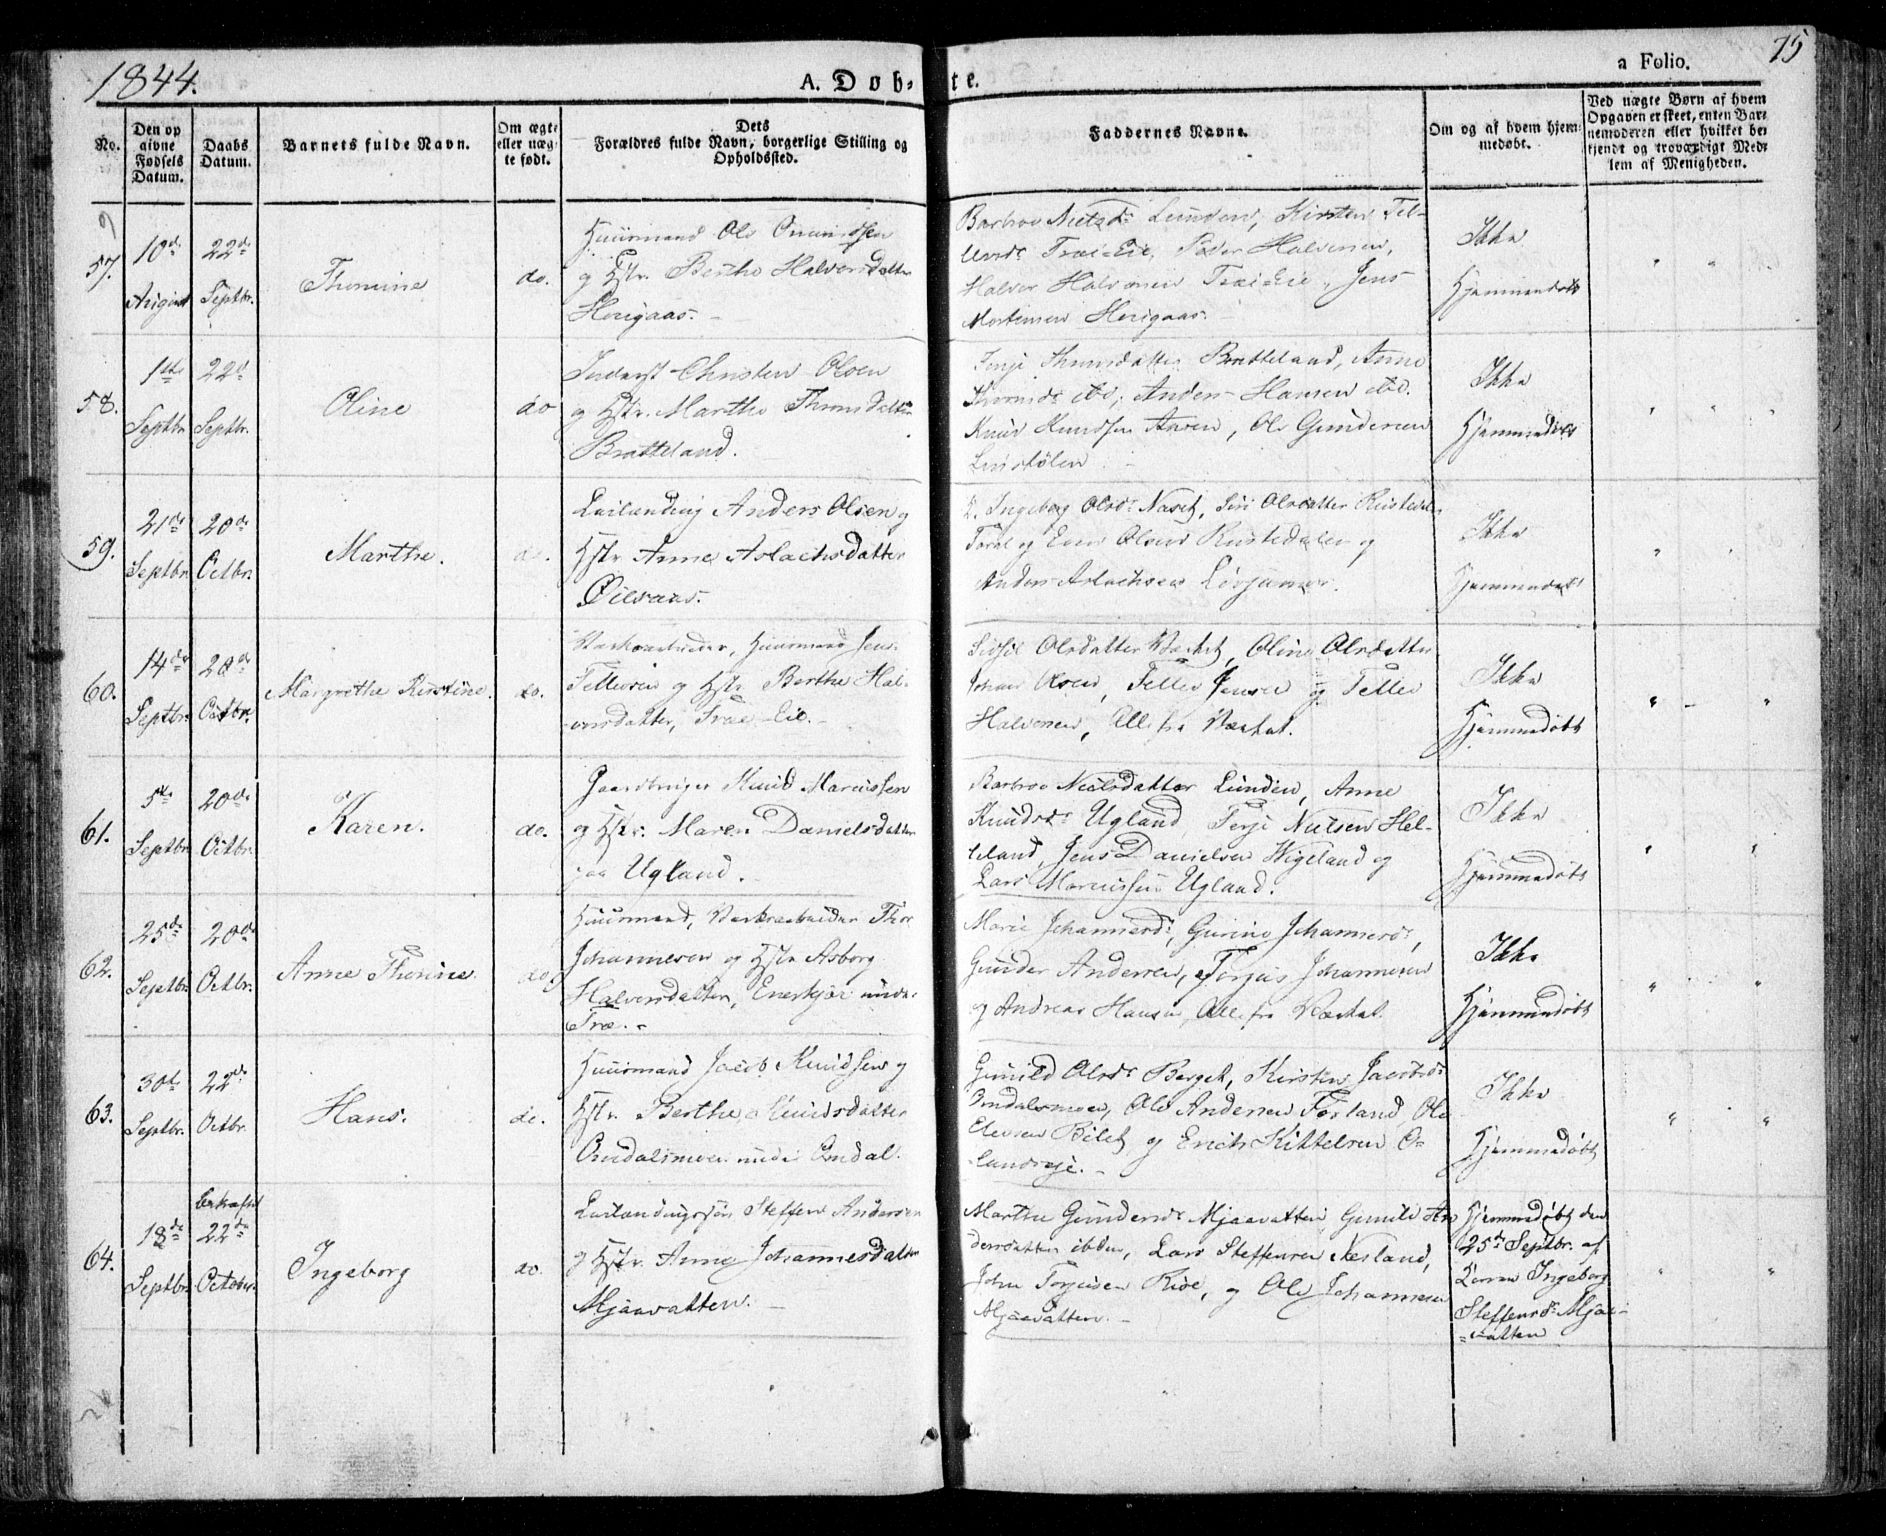 1844.
A. Døb-
te.
a Folio.
75
No.
Den op
givne
Fødsels
Datum.
Daabs
Datum.
Barnets fulde Navn.
Om ægte
eller uæg-
te født.
Dets
Forældres fulde Navn, borgerlige Stilling og
Opholdssted.
Faddernes Navne.
Om og af hvem hjem-
medøbt.
Ved uægte Børn af hvem
Opgaven er skeet, enten Bar-
nemoderen eller hvilket be-
kjendt og troværdigt Med-
lem af Menigheden.
57.
10de
August
22de
Septbr.
Thomine
do.
Huusmand Ole
g Hstr. Berthe Halvorsdatter
Barbroe Nielsdr. Lunden, Kirsten Tel-
levsdr. Træ-Eie, Peder Halvorsen,
Halvor Halvorsen Træ-Eie, Jens
Mortensen
Ikke
Hjemmedøbt
58.
1ste
Septbr.
22d
Septbr.
Oline
do
Inderst Christen Olsen
og Hstr. Marthe Thomsdatter
Bratteland.
Bratteland, Anne
Anders Hansen ibd.
Knud Knudsen Aasen, Ole Gundersen
Ikke
Hjemmedøbt
59.
21de
Septbr.
20de
Octbr.
Marthe.
do.
Leilænding Anders Olsen g
Hstr Anne Aslachsdatter
2. Ingeborg Olsdr. Næset, Siri Olsdatter
og Even Olsen g
Anders Aslachsen
Ikke
Hjemmedøbt
60.
14de
Septbr.
20de
Octbr.
Margrethe Kirstine.
do.
Værksarbeider, Huusmand Jens
Tellevsen og Hstr Berthe Hal-
vorsdatter, Træ-Eie.
Sidsil Olsdatter Værket, Oline Olsdatter
Johan Olsen, Tellev Jensen og Tellev
Halvorsen, Alle fra Værket.
Ikke
Hjemmedøbt
61.
5te
Septbr.
20de
Octbr.
Karen.
do.
Gaardbruger Knud Marcussen
og Hstr. Maren Danielsdatter
paa Ugland.
Barbroe Nielsdatter Lunden, Anne
Knudsdr. Ugland, Terje Nielsen Hel-
leland, Jens Danielsen Wigeland og
Lars Marcussen Ugland.
Ikke
Hjemmedøbt
62.
25de
Septbr.
20de
Octbr.
Anne Thomine
do
Huusmand, Værksarbeider Thor
Johannesen og Hstr Asborg
Halvorsdatter, Enerkjær under
Træ.
Marie Johannesdr, Gurine Johannesdr,
Gunder Andersen, Torjus Johannesen
g Andreas Hansen, Alle fra Værket.
Ikke
Hjemmedøbt
63.
30te
Septbr.
22de
Octbr.
Hans.
do.
Huusmand Jacob Knudsen g
Hstr Berthe Knudsdatter
Omdalsmoen under Omdal.
Gunild Olsdr Berget, Kirsten Jacobsdr
Omdalsmoen, Ole Andersen Forland, Ole
Elevsen Bilet, og Erich Kittelsen O-
landseje.
Ikke
Hjemmedøbt
64.
18de
Septbr.
bekræftet
22de
October
Ingeborg
do.
Leilændingssøn Steffen Andersen
g Hstr. Anne Johannesdatter
Mjaavatten.
Marthe Gundersdr. Mjaavatten, Gunild An-
dersdatter ibdm, Lars Steffensen Nesland,
John Torjusen Rise, og Ole Johannesen
Mjaavatten.
Hjemmedøbt den
25de Septbr. af
Konen Ingeborg
Steffensdr. Mjaa-
vatten